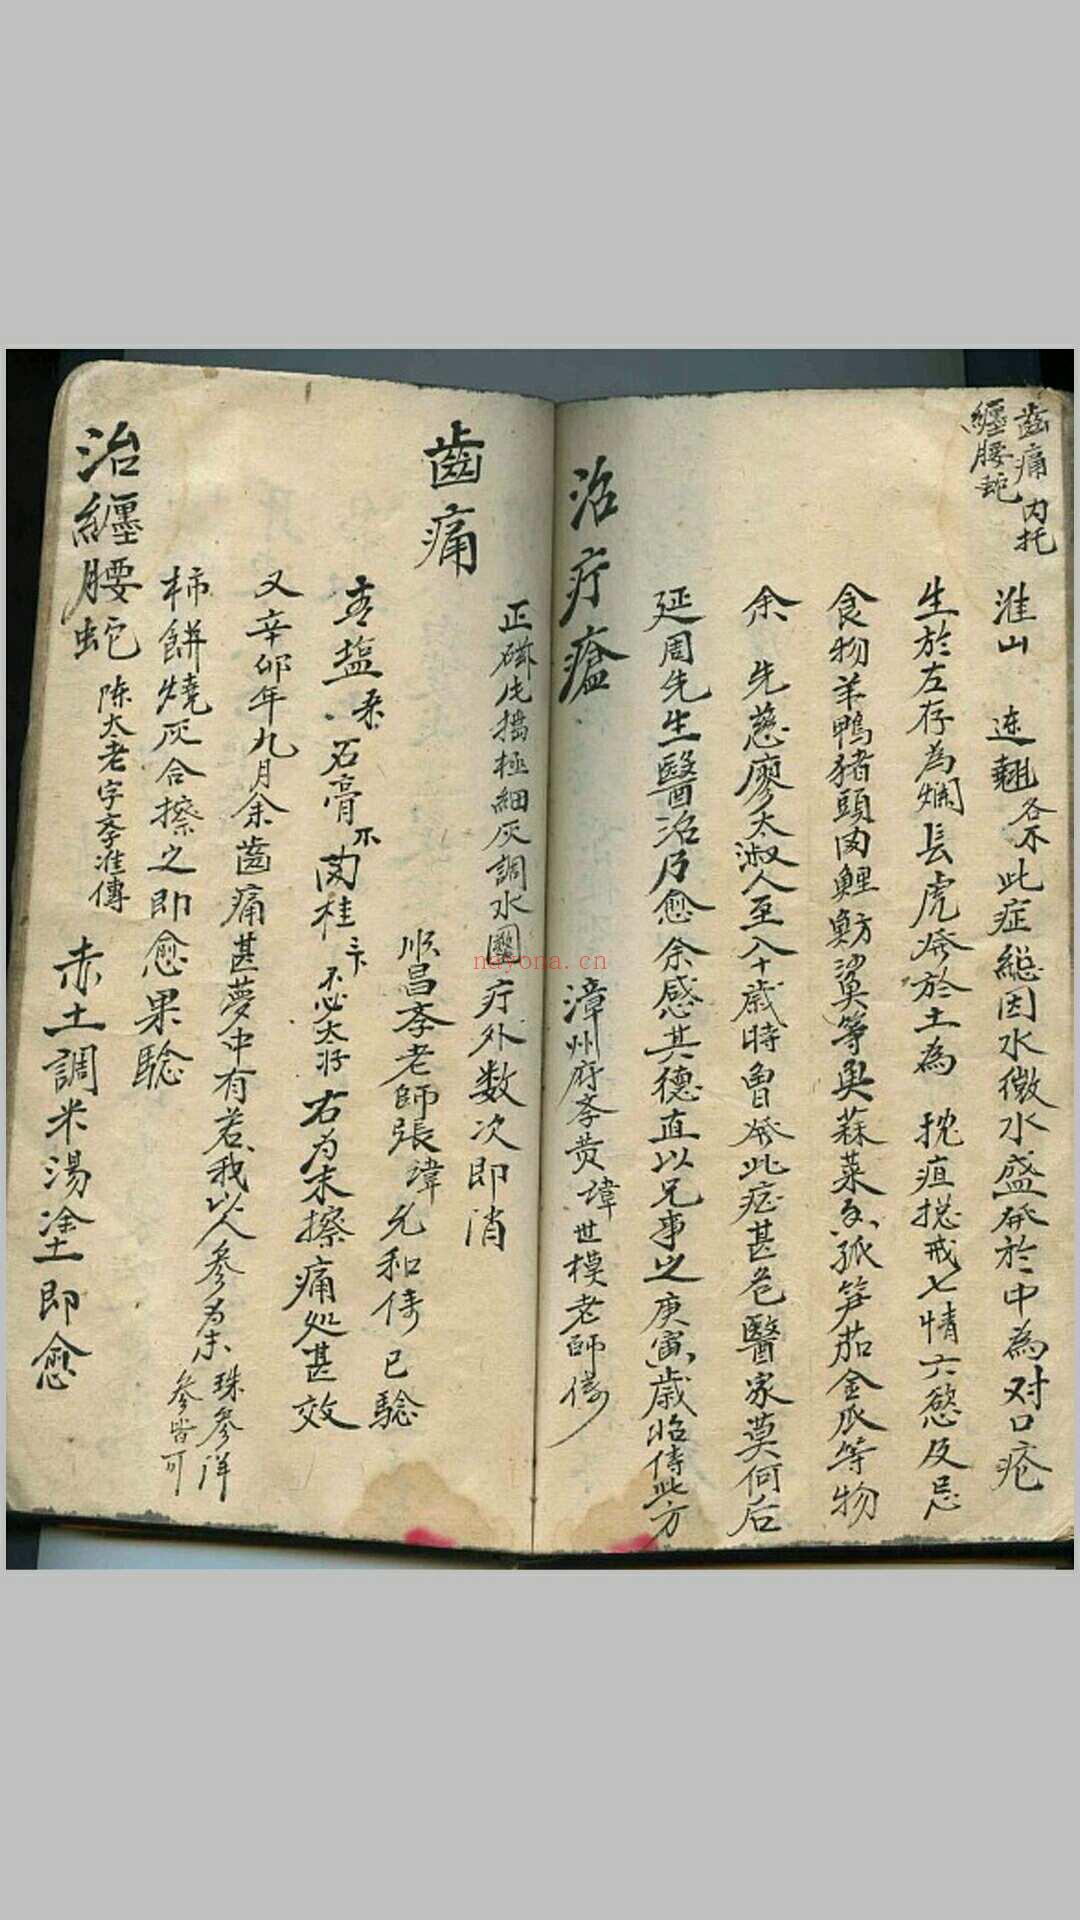 齒痛 内托
纏腰蛇
淮山 连翹各 此症總因水微水盛發於中為对口疮
生於左右為爛長虎發於土為 疽總戒七情六慾及忌
食物羊鴨豬頭肉鯉鲂鯊等臭蔴菜笋茄金瓜等物
余 先慈廖太淑人至八十歲時曾發此症甚危醫家莫何后
延周先生醫治乃愈余感其德直以兄事之庚寅歲临傳此方
治疔瘡 漳州府李贡諱世模老師傳
正磁 擣極細灰調水圈疔外数次即消
齒痛 順昌李老師張諱允和傳已驗
青盐 石膏 肉桂 不必太好 右為末擦痛処甚效
又辛卯年九月余齒痛甚夢中有若我以人參為末 珠參洋參皆可
柿餅燒灰合擦之即愈果驗
治纏腰蛇 陈太老字李淮傳 赤土調米湯塗即愈
nayona.cn